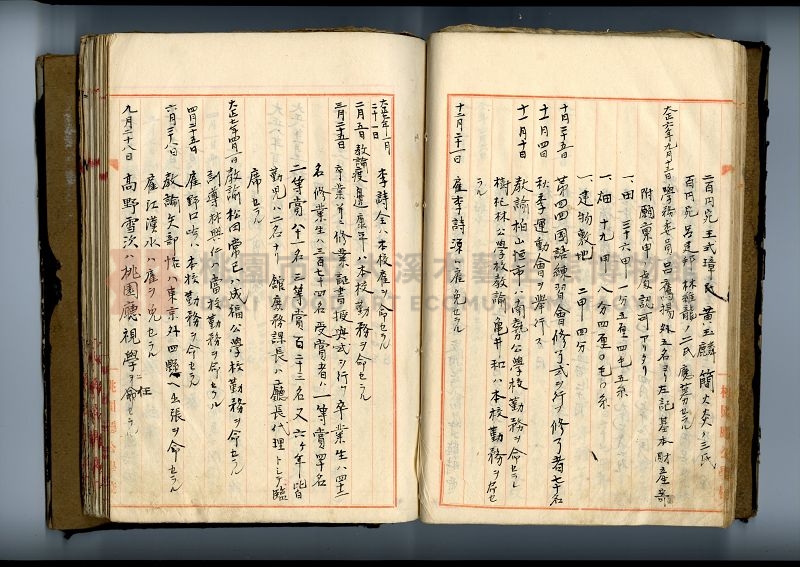 二百円宛王式璋氏 黄玉麟 簡大炎ノ三氏
百円宛呂建邦 林維龍ノ二氏應募セラル
大正六年九月十二日學務委員呂鷹揚外五名ヨリ左記基本財産寄
附願稟申ノ處認可アリタリ
一、田 三十六甲一分五厘四毛五糸
一、畑 十九甲八分四厘〇毛八糸
一、建物敷地 二甲四分
十月二十五日 第四回國語練習會修了式ヲ行フ修了者七十名
十一月四日 秋季運動會ヲ舉行ス
十一月十日 教諭柏山恒市ハ南勢公學校勤務ヲ命セラレ
樹林公學校教諭亀井和ハ本校勤務ヲ命セ
ラル
十二月二十一日 雇李詩源ハ雇ヲ免セラル
大正七年一月
二十一日 李詩全ハ本校雇ヲ命セラル
二月五日 教諭渡邊康年ハ本校勤務ヲ命セラル
三月二十五日 卒業並ニ修業証書授與式ヲ行フ卒業生ハ四十一
名修業生ハ三百七十四名受賞者ハ一等賞四十名
二等賞八十一名三等賞百二十三名又六ケ年皆
勤児ハ二名ナリ 館庶務課長ハ廳長代理トシテ臨
席セラル
大正七年四月一日 教諭松田常己ハ成福公學校勤務ヲ命セラル
訓導林興仁ハ當校勤務ヲ命セラル
四月二十五日 雇野口ハ本校勤務ヲ命セラル
六月二十八日 教諭矢部恪ハ東京外四縣ヘ出張ヲ命セラル
雇江漢水ハ雇ヲ免セラル
九月二十八日 高野雪次ハ桃園廳視學ニ任ヲ命セラル